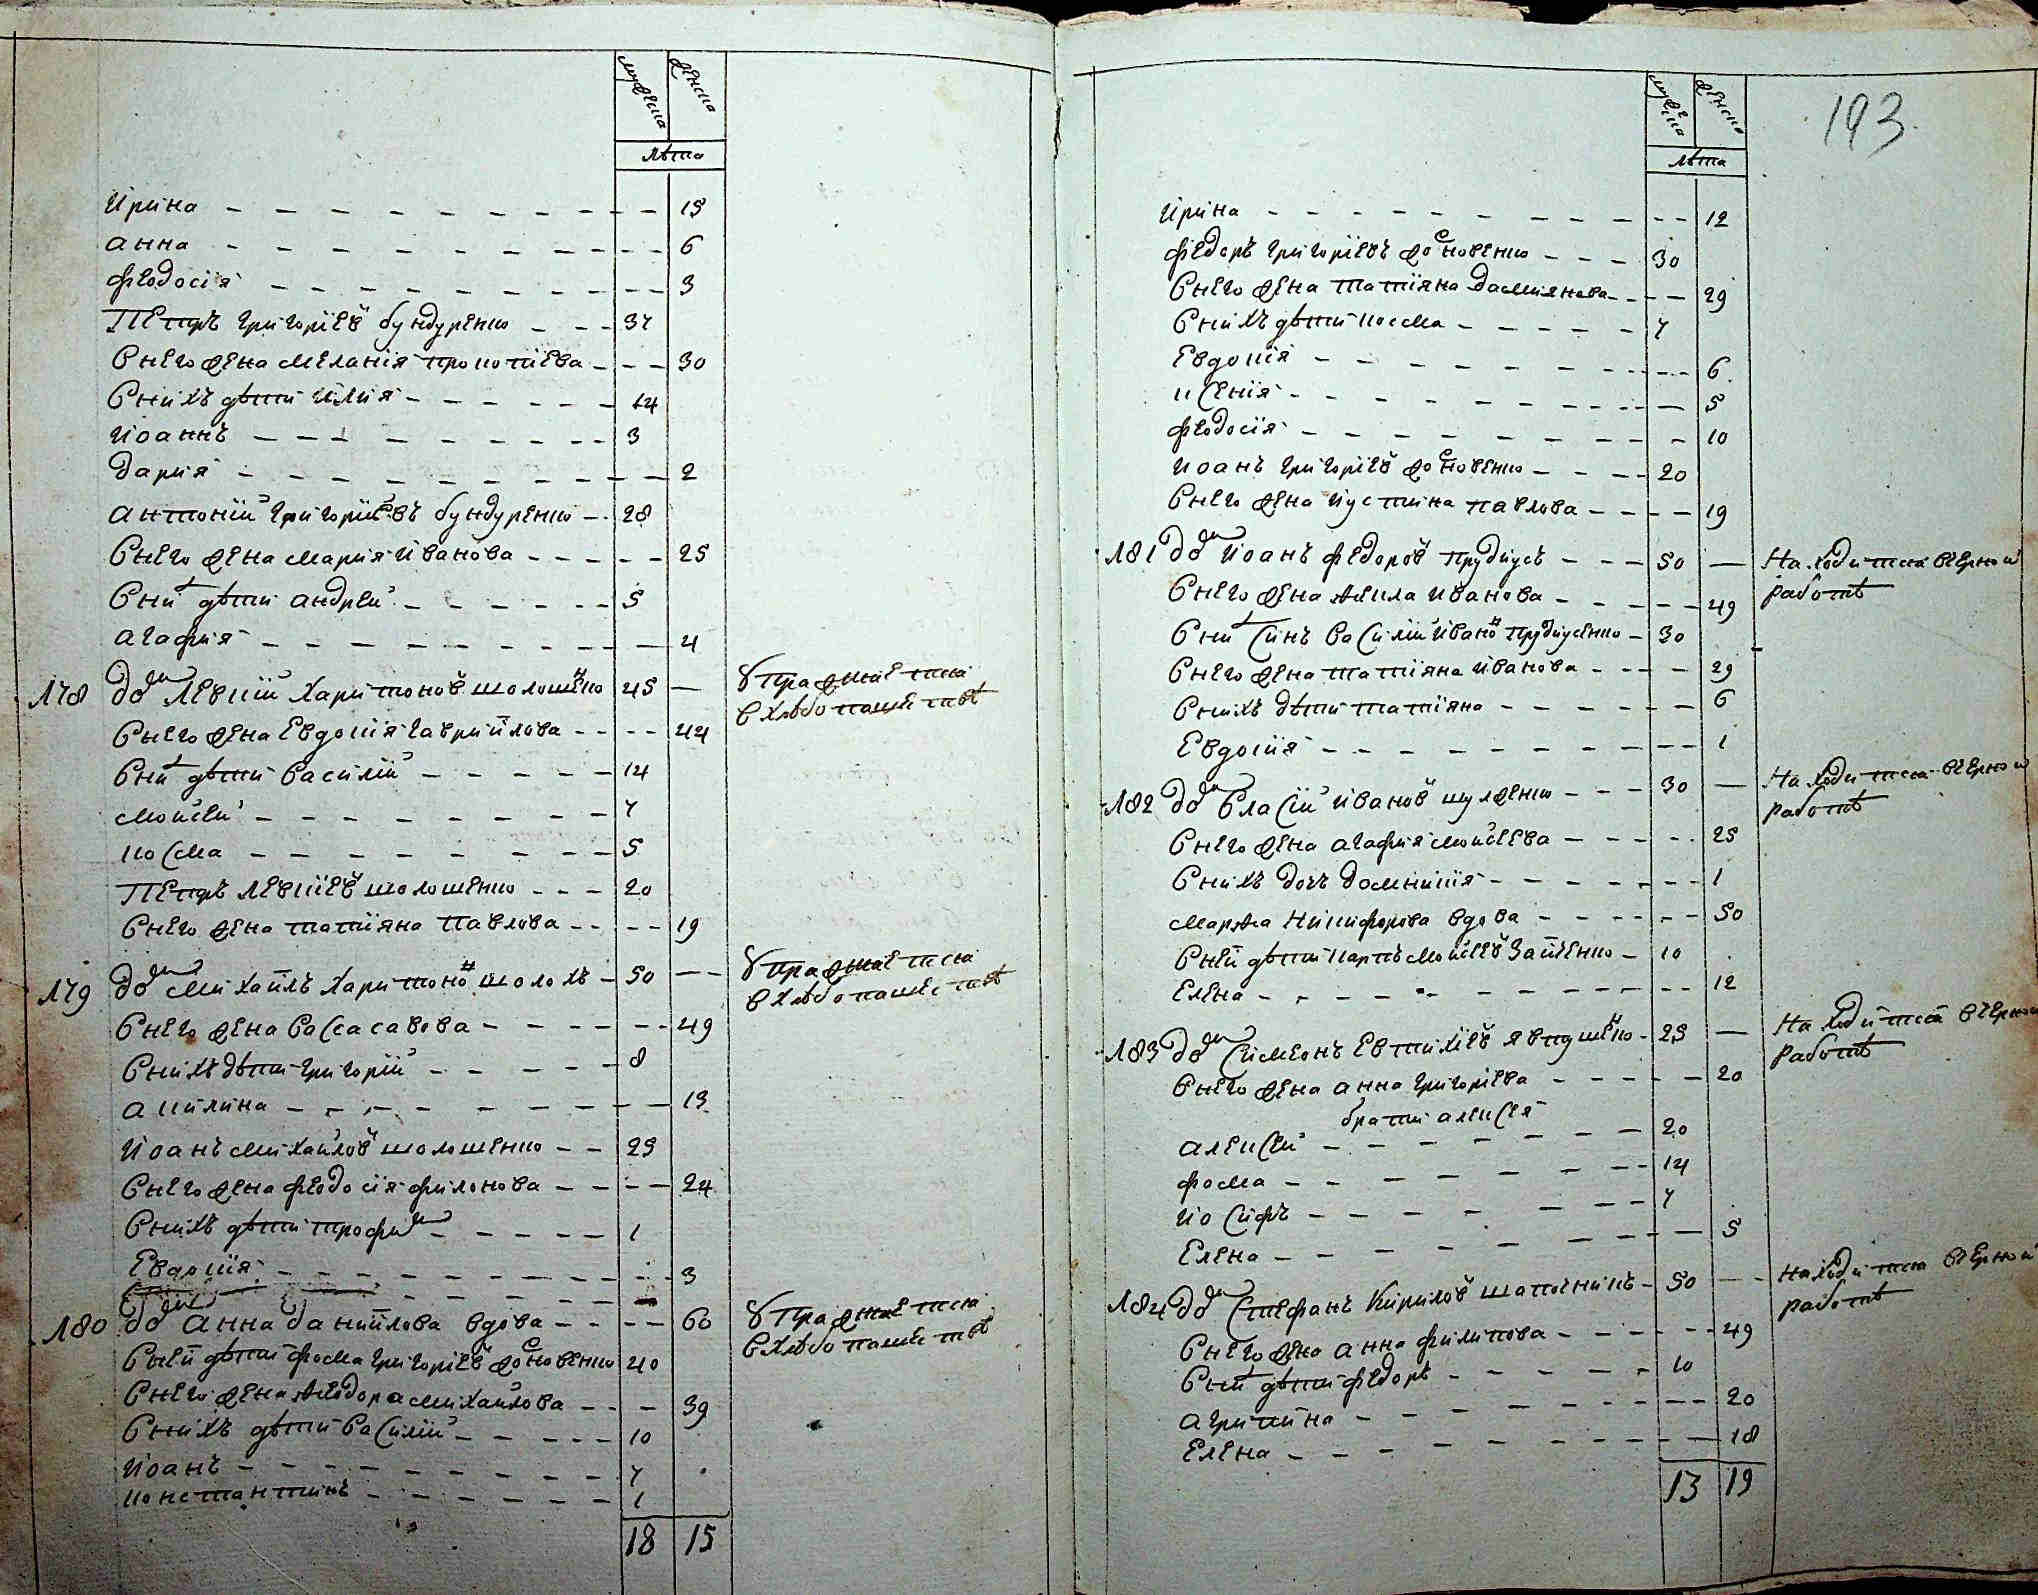 мужеска женска
лѣта
Ирина 15
анна 6
феодосія 3
Петръ григоріевъ бундуренко 37
Снего жена меланія прокопіева 30
Снихъ дѣти илия 14
Иоаннъ 3
дария 2
антоній григоріевъ бундуренко 28
Снего жена мария иванова 25
Сних дѣти андрей 5
агафия 4
178 дом Левкій харитоновъ шолошенко 45 —
упражняется
в хлѣбопашествѣ
Снего жена Евдокія гаврийлова 44
Сних дѣти василій 14
мойсей 7
косма 5
Петръ левкіевъ шолошенко 20
Снего жена татіяна павлова 19
179 дом михаилъ харитонов шолохъ 50 —
упражняется
в хлѣбопашествѣ
Снего жена васса савова 49
Снихъ дѣти григорій 8
акилина 13
Иоанъ михайловъ шолошенко 25
Снего жена феодосія филонова 24
Снихъ дѣти трофим 1
Евдокія 3
180 дом анна данийлова вдова 60
упражняется
в хлѣбопашествѣ
Сней дѣти фома григоріевъ 40
Снего жена ѳеодора михайлова 39
Снихъ дѣти василій 10
Иоанъ 7
константинъ 1
18 15
193
мужеска женска
лѣта
Ирина 12
федоръ григоріевъ 30
Снего жена татіяна дамиянова 29
Снихъ дѣти косма 7
Евдокія 6
ксенія 5
феодосія 10
Иоанъ григоріевъ 20
Снего жена иустина павлова 19
181 дом Иоанъ федоровъ прудкусъ 50 —
Находится вчерной
работѣ
Снего жена иванова 49
Сних синъ василій иванов прудкусенко 30
Снего жена татіяна иванова 29
Снихъ дѣти татіяна 6
Евдокія 1
182 дом власій ивановъ шулженко 30 —
Находится вчерной
работѣ
Снего жена агафия мойсеева 25
Снихъ дочъ домникія 1
марѳа никифорова вдова 50
Сней дѣти карпъ мойсеевъ запченко 10
Елена 12
183 дом Симеонъ Евтихіевъ явтушенко 25 —
Находится вчерной
работѣ
Снего жена анна григоріева 20
брати алексея
алексей 20
фома 14
иосифъ 7
Елена 5
184 дом Стефанъ Кириловъ шапочникъ 50 —
находится вчерной
работѣ
Снего жена анна филипова 49
Сних дѣти федоръ 10
агрипина 20
Елена 18
13 19